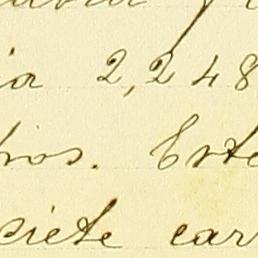 ia 2,248
hos. Este
ciete car